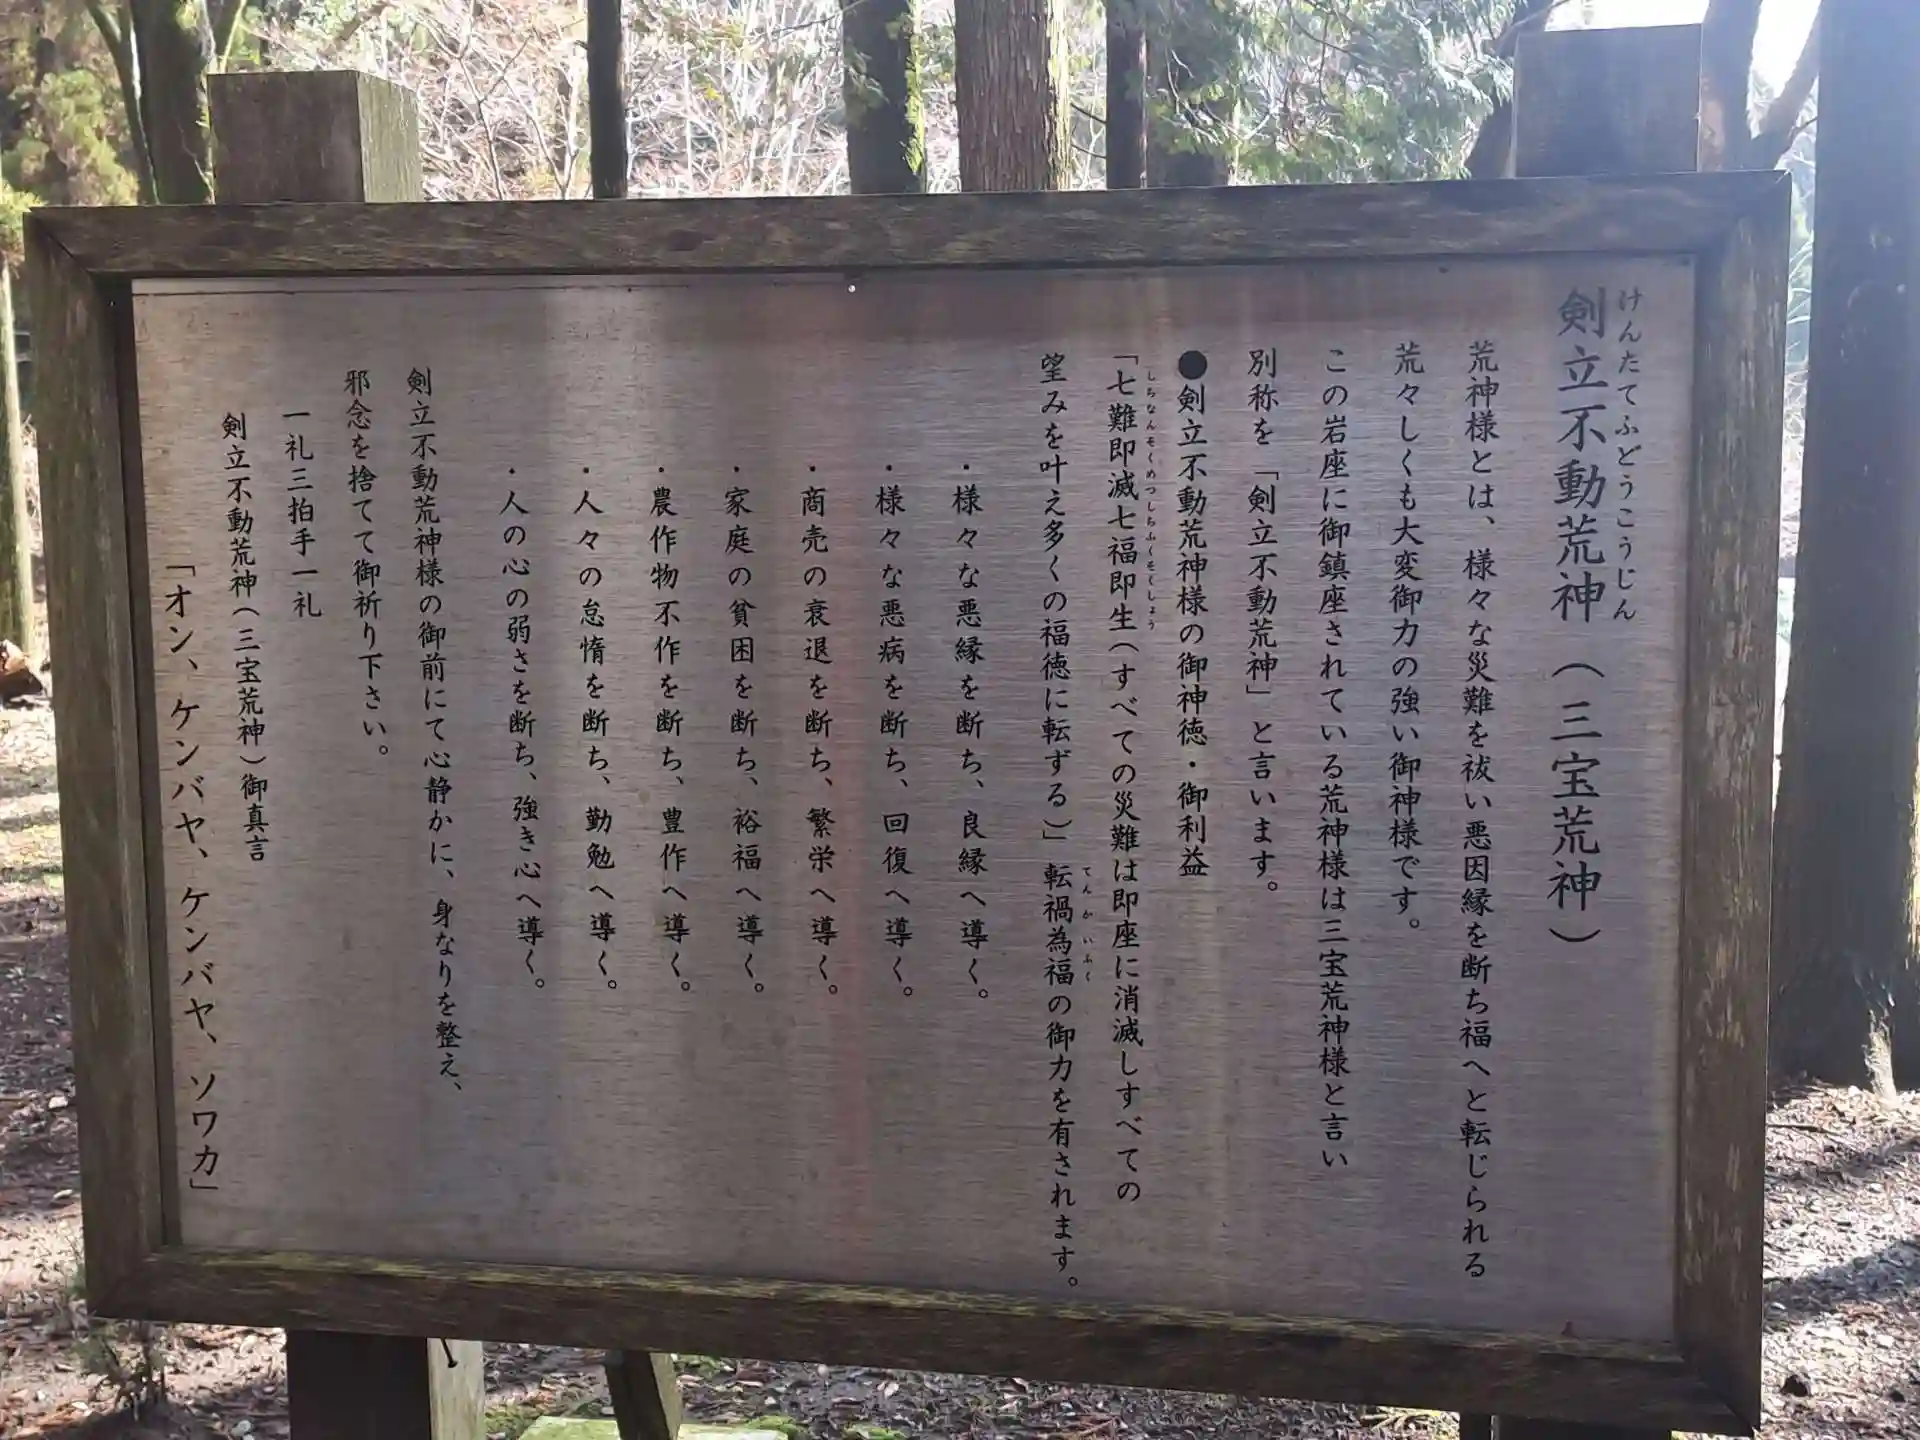 剣立不動荒神（三宝荒神）
けんたてふどうこうじん
荒神様とは、様々な災難を祓い悪因縁を断ち福へと転じられる
荒々しくも大変御力の強い御神様です。
この岩座に御鎮座されている荒神様は三宝荒神様と言い
別称を「剣立不動荒神」と言います。
●剣立不動荒神様の御神徳・御利益
「七難即滅七福即生（すべての災難は即座に消滅しすべての
しちなんそくめつしちふくそくしょう
望みを叶え多くの福徳に転ずる）」転禍為福の御力を有されます。
てんかいふく
・様々な悪縁を断ち、良縁へ導く。
・様々な悪病を断ち、回復へ導く。
・商売の衰退を断ち、繁栄へ導く。
・家庭の貧困を断ち、裕福へ導く。
・農作物不作を断ち、豊作へ導く。
・人々の怠惰を断ち、勤勉へ導く。
・人の心の弱さを断ち、強き心へ導く。
剣立不動荒神様の御前にて心静かに、身なりを整え、
邪念を捨てて御祈り下さい。
一礼三拍手一礼
剣立不動荒神（三宝荒神）御真言
「オン、ケンバヤ、ケンバヤ、ソワカ」